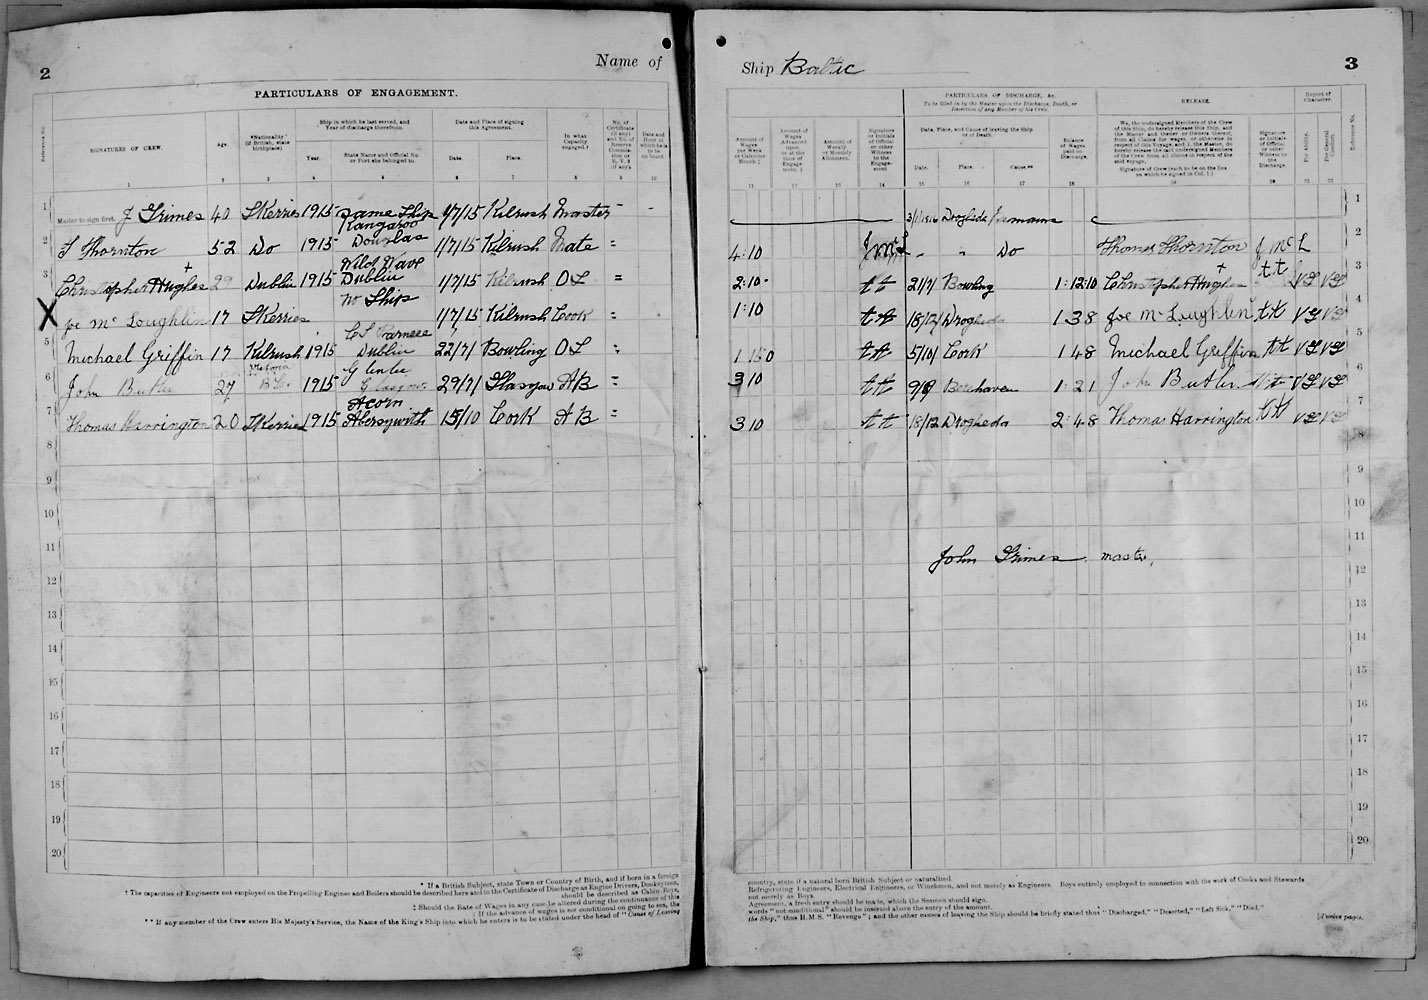 2
Name of
PARTICULARS OF ENGAGEMENT.
Reference No.
SIGNATURES OF CREW.
Age.
*Nationality (if British, state birthplace).
Ship in which he last served, and Year of discharge therefrom.
Year.
State Name and Official No. or Port she belonged to.
Date and Place of signing this Agreement.
Date.
Place.
In what Capacity engaged.†
No. of Certificate (if any) and No. of Reserve Commission or R.V.2 (if any).
Date and Hour at which he is to be on board.
1 2 3 4 5 6 7 8 9 10
1 Master to sign first. J Grimes 40 Skerries 1915 Same Ship 1/7/15 Kilrush Master -
2 T Thornton 52 Do 1915 Kangaroo Douglas 1/7/15 Kilrush Mate =
3 Christopher + Hughes 29 Dublin 1915 Wild Wave Dublin 1/7/15 Kilrush O S =
4 X Joe Mc Loughlin 17 Skerries No Ship 1/7/15 Kilrush Cook =
5 Michael Griffin 17 Kilrush 1915 C S Parnell Dublin 22/7/ Bowling O S =
6 John Butler 27 Victoria B.C. 1915 Glenlee Glasgow 29/7/ Glasgow A B =
7 Thomas Harrington 20 Skerries 1915 Acorn Aberystwith 15/10 Cork A B =
8
9
10
11
12
13
14
15
16
17
18
19
20
* If a British Subject, state Town or Country of Birth, and if born in a foreign
† The capacities of Engineers not employed on the Propelling Engines and Boilers should be described here and in the Certificate of Discharge as Engine Drivers, Donkeymen,
should be described as Cabin Boys,
‡ Should the Rate of Wages in any case be altered during the continuance of this
If the advance of wages is not conditional on going to sea, the
** If any member of the Crew enters His Majesty's Service, the Name of the King's Ship into which he enters is to be stated under the head of "Cause of Leaving
Ship Baltic
3
PARTICULARS OF DISCHARGE, &c.
To be filled in by the Master upon the Discharge, Death, or Desertion of any Member of his Crew.
RELEASE.
Report of Character.
Amount of Wages per Week or Calendar Month ‡
Amount of Wages Advanced upon or at the time of Engagement.
Amount of Weekly or Monthly Allotment.
Signature or Initials of Official or other Witness to the Engagement.
Date, Place, and Cause of leaving the Ship or of Death.
Date.
Place.
Cause.**
Balance of Wages paid on Discharge.
We, the undersigned Members of the Crew of this ship, do hereby release this Ship, and the Master and Owner or Owners thereof, from all Claims for wages, or otherwise, in respect of this Voyage, and I, the Master, do hereby release the said undersigned Members of the Crew from all claims in respect of the said voyage.
Signature of Crew (each to be on the line on which he signed in Col. 1.)
Signature or Initials of Official or other Witness to the Discharge.
For Ability.
For General Conduct.
Reference No.
11 12 13 14 15 16 17 18 19 20 21 22
3/1/1916 Drogheda Remains 1
4.10 J Mc L " " Do Thomas Thornton J Mc L 2
2:10 - t t 21/7/ Bowling 1:12:10 Christopher + Hughes t t VG VG 3
1:10 t t 18/12/ Drogheda 1 3 8 Joe Mc Loughlin t t VG VG 4
1 15 0 t t 5/10/ Cork 1 4 8 Michael Griffin t t VG VG 5
3 10 t t Berehaven 1:21 John Butler t t VG VG 6
3 10 t t 18/12 Drogheda 2:4.8 Thomas Harrington t t VG VG 7
8
9
10
11
John Grimes master,
12
13
14
15
16
17
18
19
20
country, state if a natural born British Subject or naturalized.
Refrigerating Engineers, Electrical Engineers, or Winchmen, and not merely as Engineers. Boys entirely employed in connection with the work of Cooks and Stewards
not merely as Boys.
Agreement, a fresh entry should be made, which the Seamen should sign.
words "not conditional" should be inserted above the entry of the amount.
the Ship," thus H.M.S. "Revenge"; and the other causes of leaving the Ship should be briefly stated thus "Discharged," "Deserted," "Left Sick," "Died."